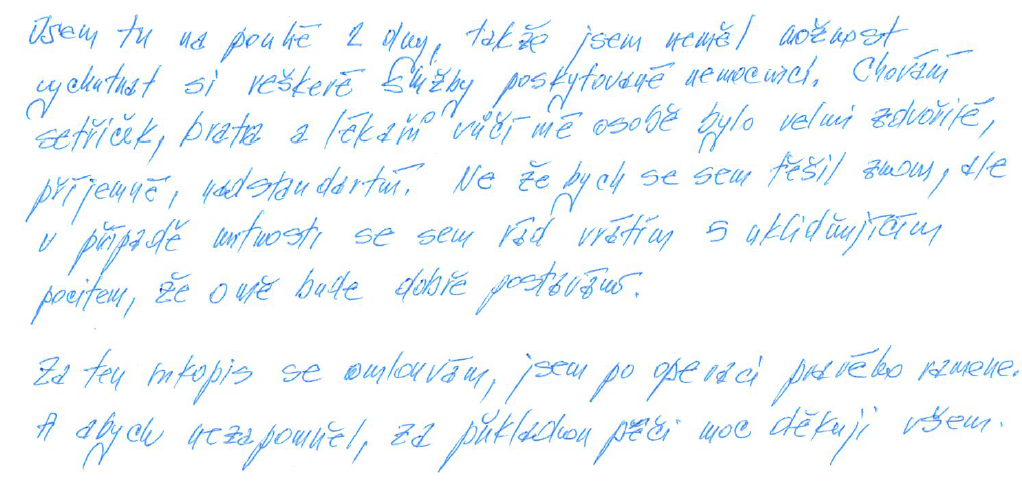 Jsem tu na pouhé 2 dny, takže jsem neměl možnost
vychutnat si veškeré služby poskytované nemocnicí. Chování
sestřiček, bratra a lékařů vůči mé osobě bylo velmi zdvořilé,
příjemné, nadstandartní. Ne že bych se sem těšil znovu, ale
v případě nutnosti se sem rád vrátím s uklidňujícím
pocitem, že o mě bude dobře postaráno.
Za ten rukopis se omlouvám, jsem po operaci pravého ramene.
A abych nezapomněl, za příkladnou péči moc děkuji všem.